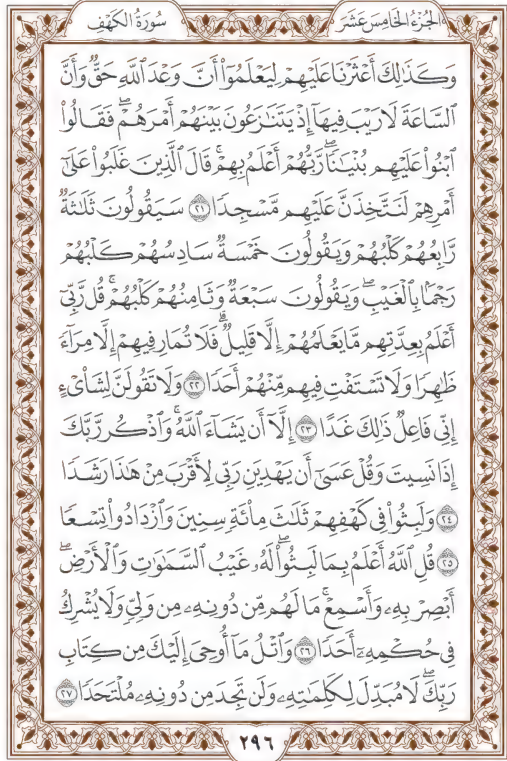 الجُزْءُ الخَامِسَ عَشَرَ سُورَةُ الكَهْفِ
وَكَذَٰلِكَ أَعْثَرْنَا عَلَيْهِمْ لِيَعْلَمُوٓاْ أَنَّ وَعْدَ ٱللَّهِ حَقٌّ وَأَنَّ
ٱلسَّاعَةَ لَا رَيْبَ فِيهَآ إِذْ يَتَنَٰزَعُونَ بَيْنَهُمْ أَمْرَهُمْۖ فَقَالُواْ
ٱبْنُواْ عَلَيْهِم بُنْيَٰنٗاۖ رَّبُّهُمْ أَعْلَمُ بِهِمْۚ قَالَ ٱلَّذِينَ غَلَبُواْ عَلَىٰٓ
أَمْرِهِمْ لَنَتَّخِذَنَّ عَلَيْهِم مَّسْجِدٗا ٢١ سَيَقُولُونَ ثَلَٰثَةٞ
رَّابِعُهُمْ كَلْبُهُمْ وَيَقُولُونَ خَمْسَةٞ سَادِسُهُمْ كَلْبُهُمْ
رَجْمَۢا بِٱلْغَيْبِۖ وَيَقُولُونَ سَبْعَةٞ وَثَامِنُهُمْ كَلْبُهُمْۚ قُل رَّبِّيٓ
أَعْلَمُ بِعِدَّتِهِم مَّا يَعْلَمُهُمْ إِلَّا قَلِيلٞۗ فَلَا تُمَارِ فِيهِمْ إِلَّا مِرَآءٗ
ظَٰهِرٗا وَلَا تَسْتَفْتِ فِيهِم مِّنْهُمْ أَحَدٗا ٢٢ وَلَا تَقُولَنَّ لِشَاْيْءٍ
إِنِّي فَاعِلٞ ذَٰلِكَ غَدًا ٢٣ إِلَّآ أَن يَشَآءَ ٱللَّهُۚ وَٱذْكُر رَّبَّكَ
إِذَا نَسِيتَ وَقُلْ عَسَىٰٓ أَن يَهْدِيَنِ رَبِّي لِأَقْرَبَ مِنْ هَٰذَا رَشَدٗا
٢٤ وَلَبِثُواْ فِي كَهْفِهِمْ ثَلَٰثَ مِاْئَةٖ سِنِينَ وَٱزْدَادُواْ تِسْعٗا
٢٥ قُلِ ٱللَّهُ أَعْلَمُ بِمَا لَبِثُواْۖ لَهُۥ غَيْبُ ٱلسَّمَٰوَٰتِ وَٱلْأَرْضِۖ
أَبْصِرْ بِهِۦ وَأَسْمِعْۚ مَا لَهُم مِّن دُونِهِۦ مِن وَلِيّٖ وَلَا يُشْرِكُ
فِي حُكْمِهِۦٓ أَحَدٗا ٢٦ وَٱتْلُ مَآ أُوحِيَ إِلَيْكَ مِن كِتَابِ
رَبِّكَۖ لَا مُبَدِّلَ لِكَلِمَٰتِهِۦ وَلَن تَجِدَ مِن دُونِهِۦ مُلْتَحَدٗا ٢٧
٢٩٦